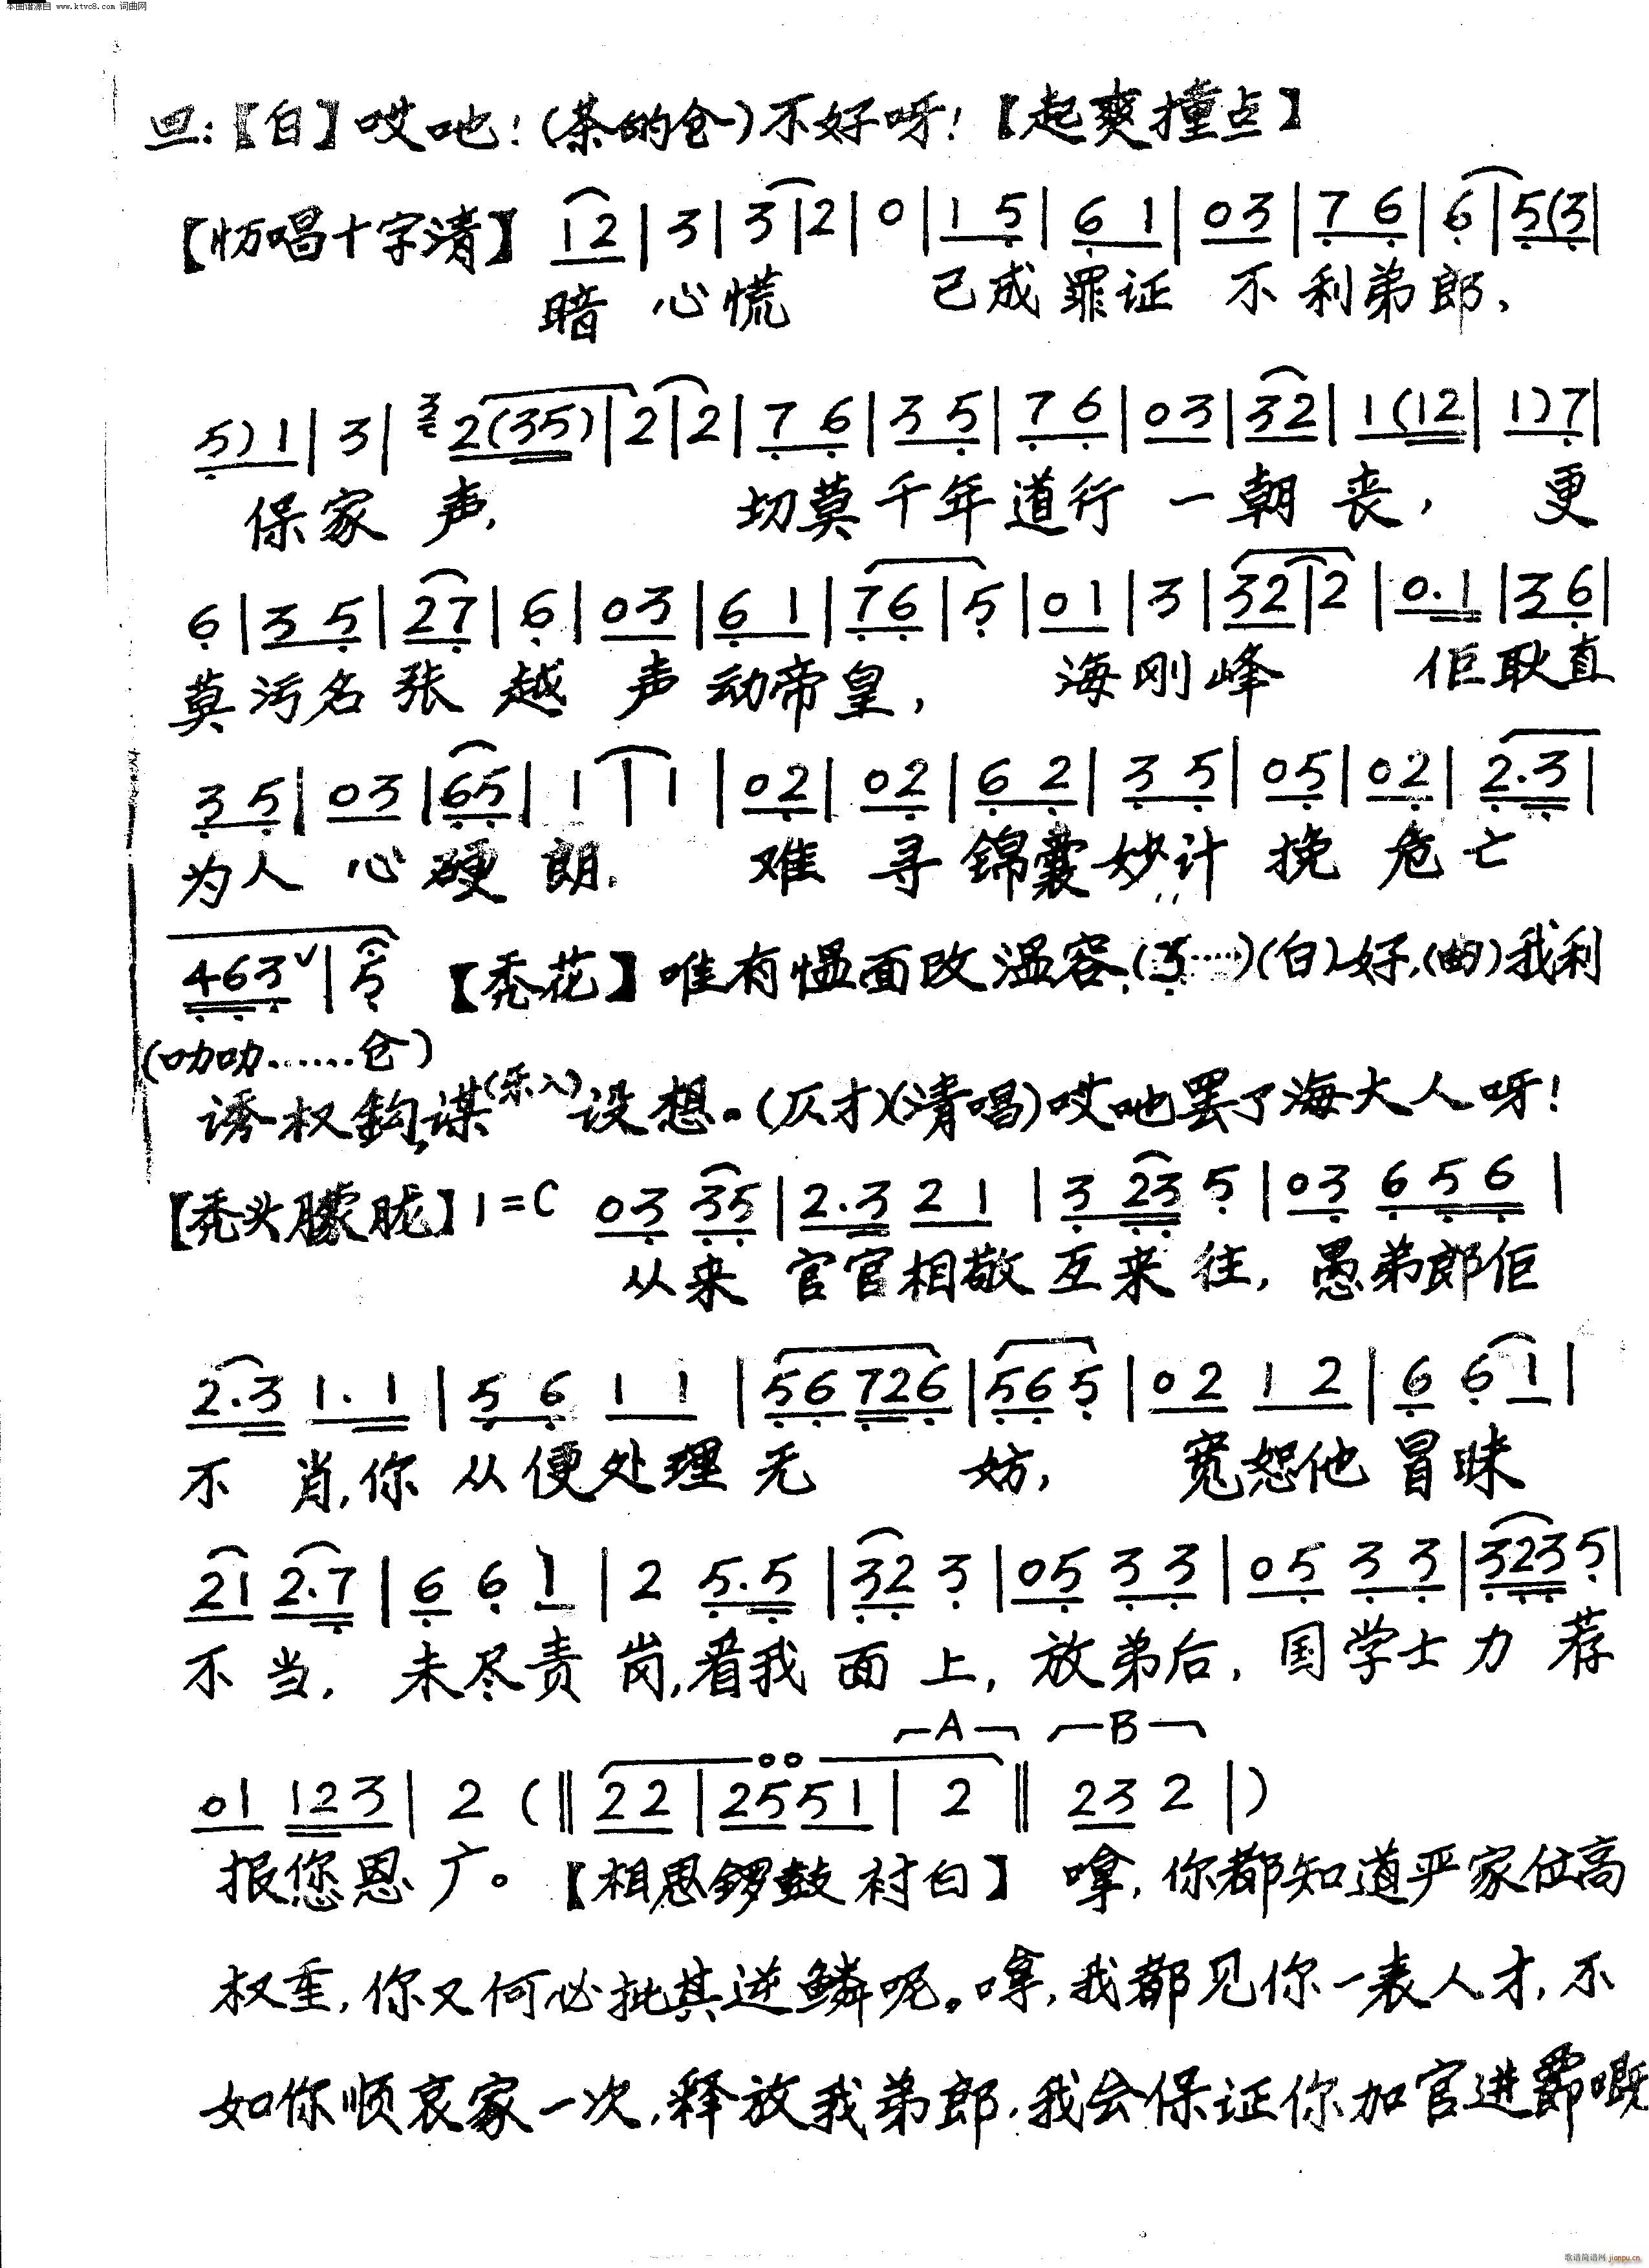 本曲谱源自 www.ktvc8.com 词曲网
旦:【白】哎吔!(茶的仓)不好呀!【起爽撞点】
【快唱十字清】 12 | 3 | 3 | 2 | 0 | 1 5 | 6 1 | 03 | 7 6 | 6 | 5(3 |
暗 心慌 已成罪证 不利弟郎,
5)1 | 3 | 2(35) | 2 | 2 | 7 6 | 3 5 | 7 6 | 03 | 32 | 1(12 | 1)7 |
保家声, 切莫千年道行 一朝丧, 更
6 | 3 5 | 27 | 6 | 03 | 6 1 | 76 | 5 | 01 | 3 | 32 | 2 | 0.1 | 36 |
莫污名张越 声动帝皇, 海刚峰 佢耿直
3 5 | 03 | 65 | 1 | 1 | 02 | 02 | 6 2 | 3 5 | 05 | 02 | 2.3 |
为人 心硬朗. 难 寻锦囊妙计 挽 危亡
463 | 5 【秃花】唯有愠面改温容,(3……)(白)好,(曲)我利
(叻叻……仓)
诱权钩谋(乐入)设想。(仄才)(清唱)哎吔罢了海大人呀!
【秃头朦胧】1=C 03 35 | 2.3 2 1 | 3 23 5 | 03 6 5 6 |
从来 官官相敬互来往, 愚弟郎佢
2.3 1.1 | 5 6 1 1 | 56 726 | 56 5 | 02 1 2 | 6 6 1 |
不 肖,你 从便处理无 妨, 宽恕他冒昧
21 2.7 | 6 6 1 | 2 5.5 | 32 3 | 05 3 3 | 05 3 3 | 323 5 |
不当, 未尽责岗,看我面上, 放弟后, 国学士力荐
A B
01 123 | 2 (‖ 22 | 25 51 | 2 ‖ 23 2 |)
报您恩广。【相思锣鼓衬白】 嗱, 你都知道严家位高
权重, 你又何必批其逆鳞呢。嗱, 我都见你一表人才, 不
如你顺哀家一次, 释放我弟郎, 我会保证你加官进爵嘅
歌谱简谱网 jianpu.cn